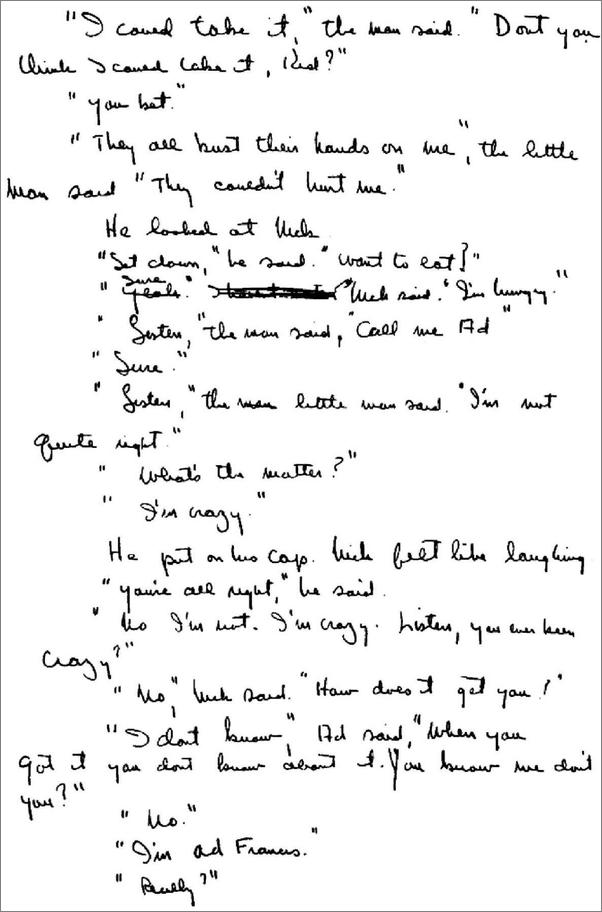 "I could take it," the man said. "Dont you
think I could take it, Kid?"
"You bet."
"They all bust their hands on me", the little
man said "They couldn't hurt me."
He looked at Nick
"Set down," he said. "Want to eat?"
Sure
"Yeah." Nick said. "I'm hungry."
"Listen," the man said, "Call me Ad"
"Sure."
"Listen," the man little man said. "I'm not
quite right."
"What's the matter?"
"I'm crazy."
He put on his cap. Nick felt like laughing
"You're all right," he said.
"No I'm not. I'm crazy. Listen, you ever been
crazy?"
"No," Nick said. "How does it get you?"
"I dont know", Ad said, "When you
got it you dont know about it. You know me don't
you?"
"No."
"I'm Ad Francis."
"Really?"